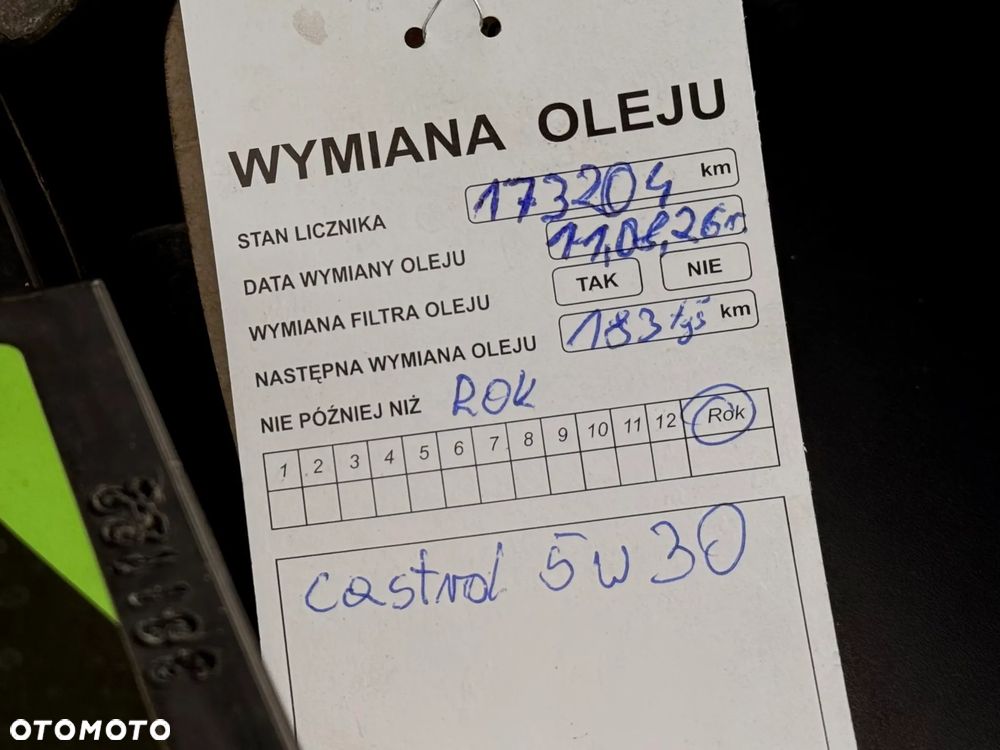 WYMIANA OLEJU
STAN LICZNIKA 173204 km
DATA WYMIANY OLEJU 11,08,26r.
WYMIANA FILTRA OLEJU TAK NIE
NASTĘPNA WYMIANA OLEJU 183 tyś km
NIE PÓŹNIEJ NIŻ ROK
1 2 3 4 5 6 7 8 9 10 11 12 Rok
castrol 5w30
331122
OTOMOTO